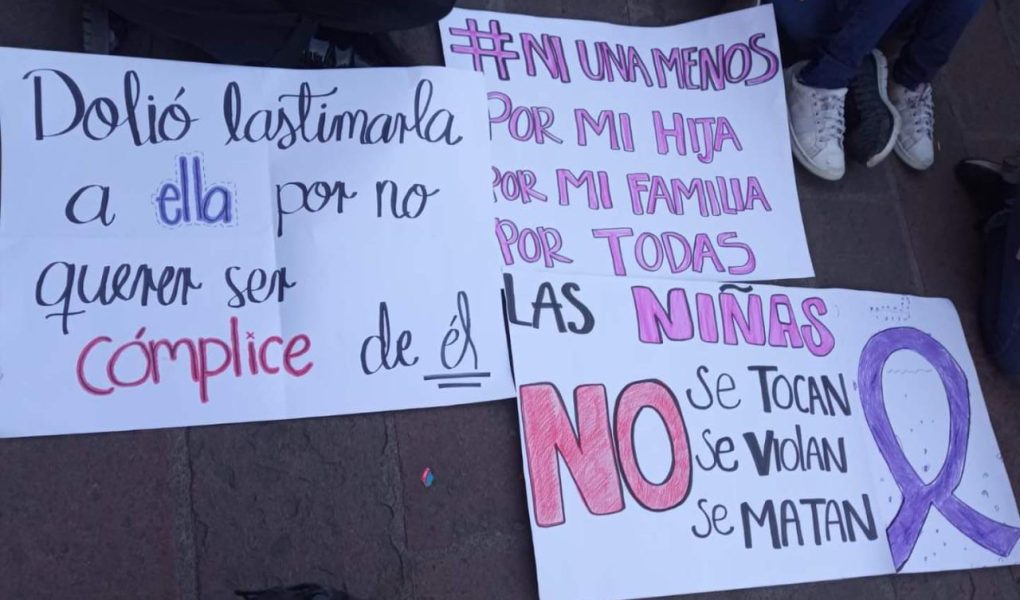 Dolió lastimarla
a ella por no
querer ser
cómplice de él
#NI UNA MENOS
POR MI HIJA
POR MI FAMILIA
POR TODAS
LAS NIÑAS
NO
Se TOCAN
Se VIOLAN
Se MATAN